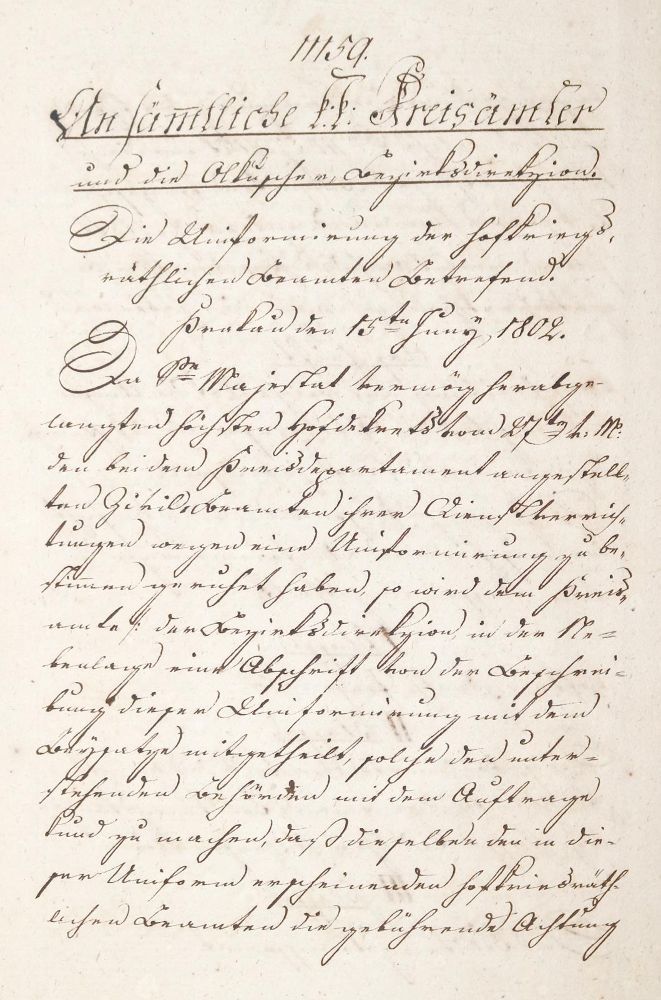 11159.
An sämtliche k: k: Kreisämter
und die Olkuscher Bezirksdirekzion.
Die Uniformirung der hofkriegs-
räthlichen Beamten Betrefend.
Krakau den 15ten Juny 1802.
Da Se Majestät vermög herabge-
langten höchsten Hofdekrets vom 27ten v: M:
den bei dem Kreisdepartament angestell-
ten Zivil-Beamten ihrer Dienstverrich-
tungen wegen eine Uniformirung zu be-
stimmen geruhet haben, so wird dem Kreis-
amte /: der Bezirksdirekzion in der Ne-
benlage eine Abschrift von der Beschrei-
bung dieser Uniformirung mit dem
Beysatze mitgetheilt, solche den unter-
stehenden Behörden mit dem Auftrage
kund zu machen, daß dieselben den in die-
ser Uniform erscheinenden hofkriesräth-
lichen Beamten die gebührende Achtung